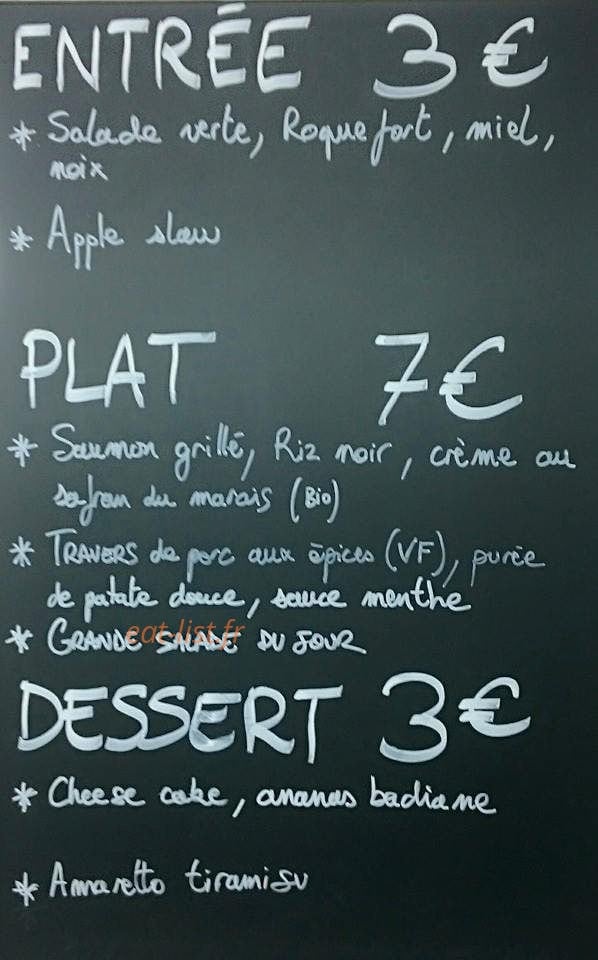 ENTRÉE 3 €
* Salade verte, Roquefort, miel,
noix
* Apple slaw
PLAT 7€
* Saumon grillé, Riz noir, crème au
safran du marais (Bio)
* TRAVERS de porc aux épices (VF), purée
de patate douce, sauce menthe
* GRANDE SALADE DU JOUR
eat-list.fr
DESSERT 3€
* Cheese cake, ananas badiane
* Amaretto tiramisu